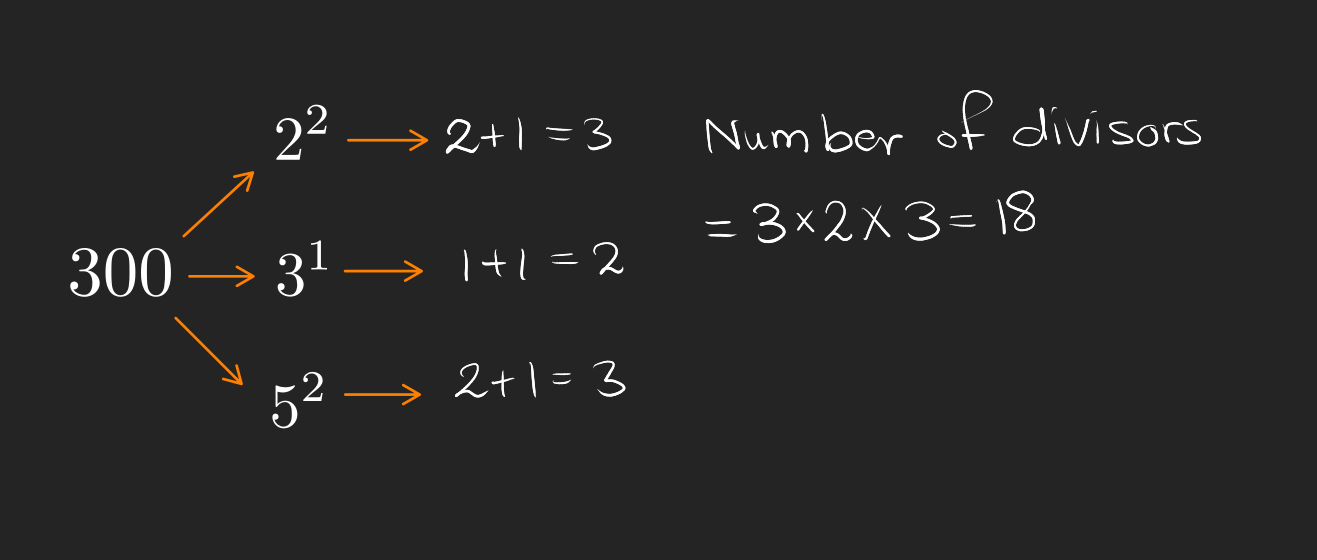 2² → 2+1 = 3
300 → 3¹ → 1+1 = 2
5² → 2+1 = 3
Number of divisors
= 3×2×3 = 18